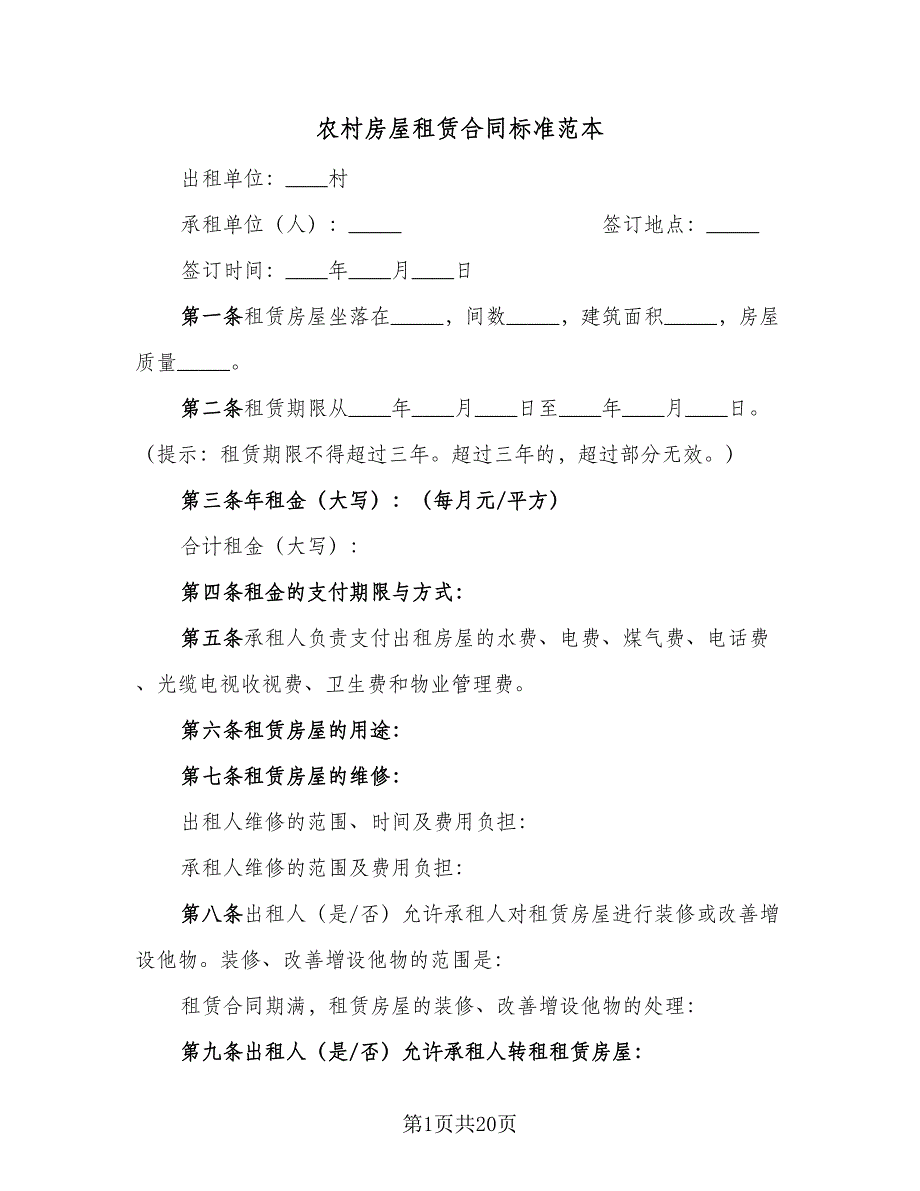 农村房屋租赁合同标准范本
出租单位：____村
承租单位（人）：_____ 签订地点：_____
签订时间：____年____月____日
第一条租赁房屋坐落在_____，间数_____，建筑面积_____，房屋
质量_____。
第二条租赁期限从____年____月____日至____年____月____日。
（提示：租赁期限不得超过三年。超过三年的，超过部分无效。）
第三条年租金（大写）：（每月元/平方）
合计租金（大写）：
第四条租金的支付期限与方式：
第五条承租人负责支付出租房屋的水费、电费、煤气费、电话费
、光缆电视收视费、卫生费和物业管理费。
第六条租赁房屋的用途：
第七条租赁房屋的维修：
出租人维修的范围、时间及费用负担：
承租人维修的范围及费用负担：
第八条出租人（是/否）允许承租人对租赁房屋进行装修或改善增
设他物。装修、改善增设他物的范围是：
租赁合同期满，租赁房屋的装修、改善增设他物的处理：
第九条出租人（是/否）允许承租人转租租赁房屋：
第1页共20页